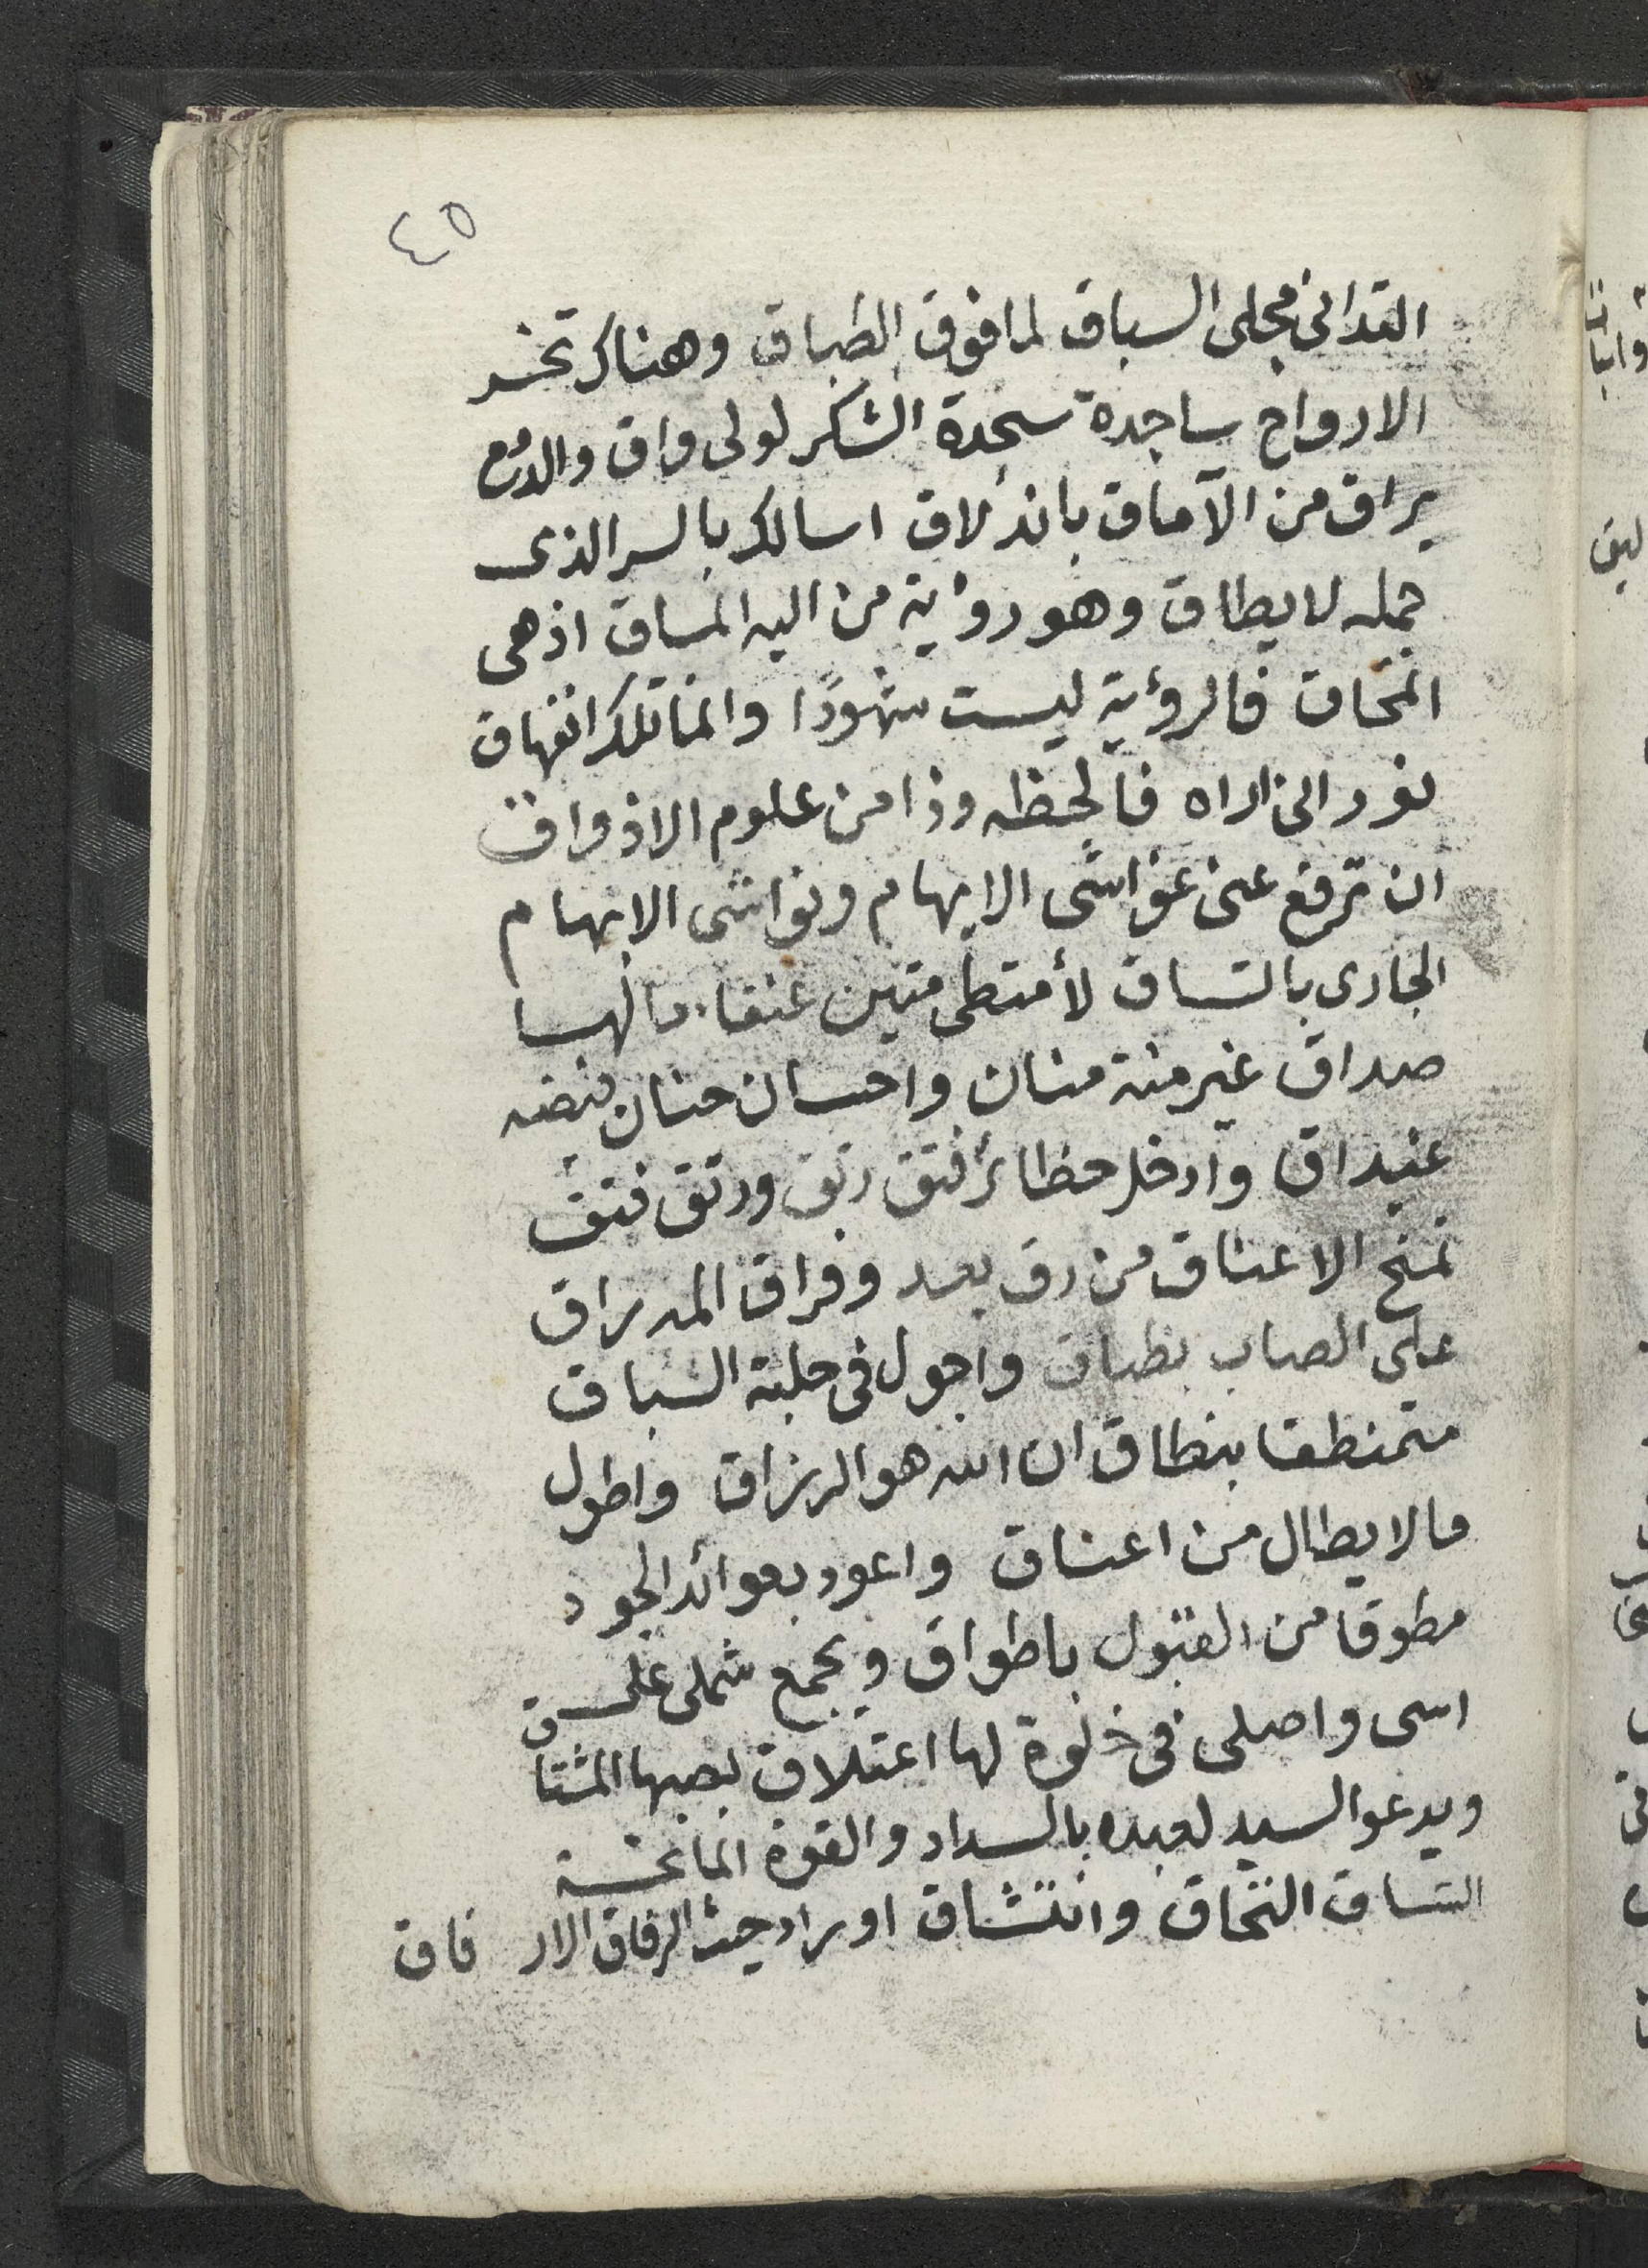 ٤٥
التدانى مجلى السباق لما فوق الطباق وهناك تخر
الارواح ساجدة سجدة الشكر لولى واق والدمع
يراق من الآماق باندلاق اسالك بالسر الذى
حمله لا يطاق وهو رؤية من اليه المساق اذ هى
انمحاق فالرؤية ليست شهودًا وانما تلك انفهاق
نور انى اراه فالحظه وذا من علوم الاذواق
ان ترفع عنى غواشى الايهام ونواشى الابهام
الجارى بالتساق لأمتطى متين عنقاء ما لها
صداق غير منة منان واحسان حنان فيضه
غيداق وادخل حظائر فتق رتق ورتق فتق
تمنح الاعناق من رق بعد وفراق المر يراق
على الصاب بطباق واجول فى حلبة السباق
متمنطقا بنطاق ان الله هو الرزاق واطول
ما لا يطال من اعناق واعود بعوائد الجود
مطوقا من القبول باطواق ويجمع شملى على
اسى واصلى فى خلوة لها اعتلاق بصبها المشتاق
ويدعو السيد لعبده بالسداد والقوة المانحة
التساق التحاق وانتشاق اوراد حيث الرفاق الار فاق